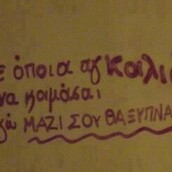 ε όποια αγκαλι
να κοιμάσαι
εγώ ΜΑΖΙ ΣΟΥ ΘΑ ΞΥΠΝΑ